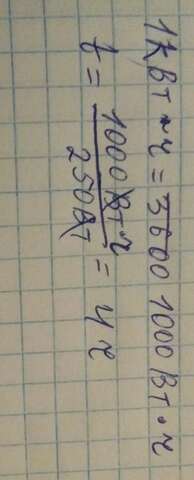 1кВт·ч = 3600 1000 Вт·ч
t = 1000 Вт·ч / 250 Вт = 4 ч